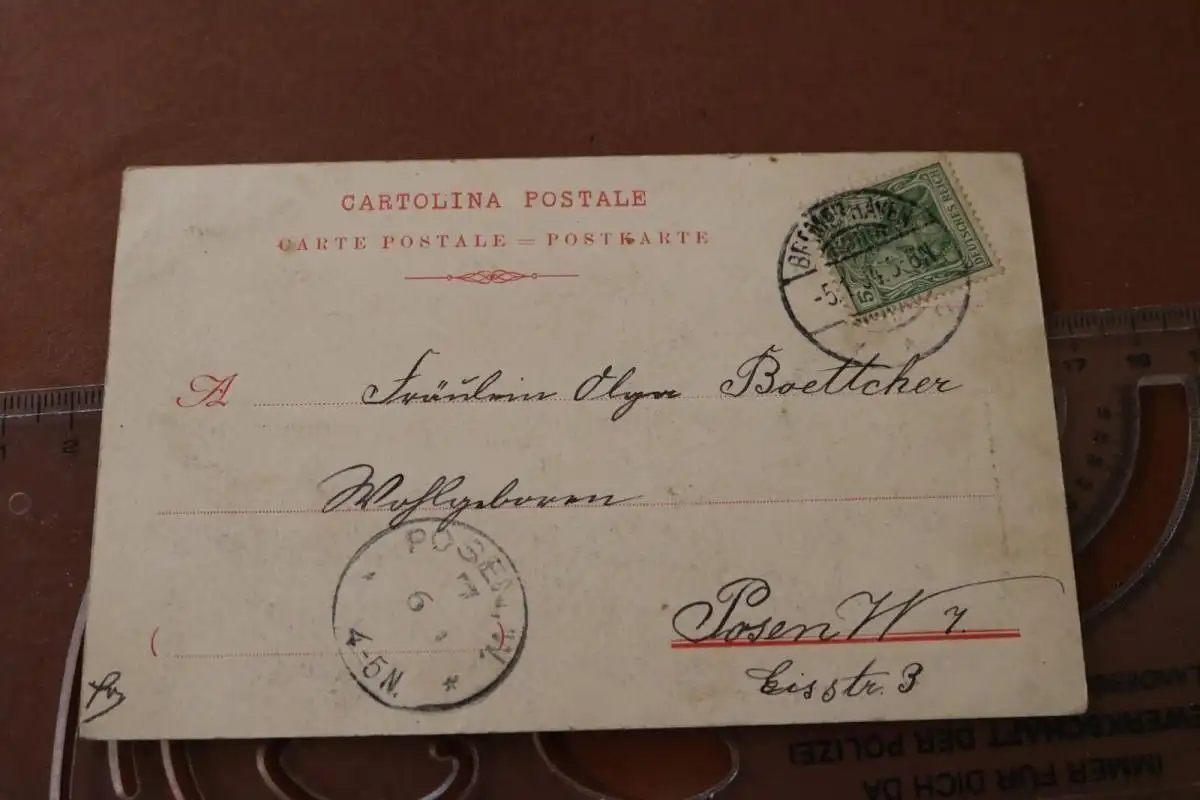 CARTOLINA POSTALE
CARTE POSTALE = POSTKARTE
DEUTSCHES REICH
5
BREMERHAVEN
-5. 4-5.N.
A Fräulein Olga Boettcher
Wohlgeboren
POSEN W.
6
4-5N.
*
Posen W 7.
Eisstr. 3
1 2
17 18
GEWERKSCHAFT DER POLIZEI
IMMER FÜR DICH DA